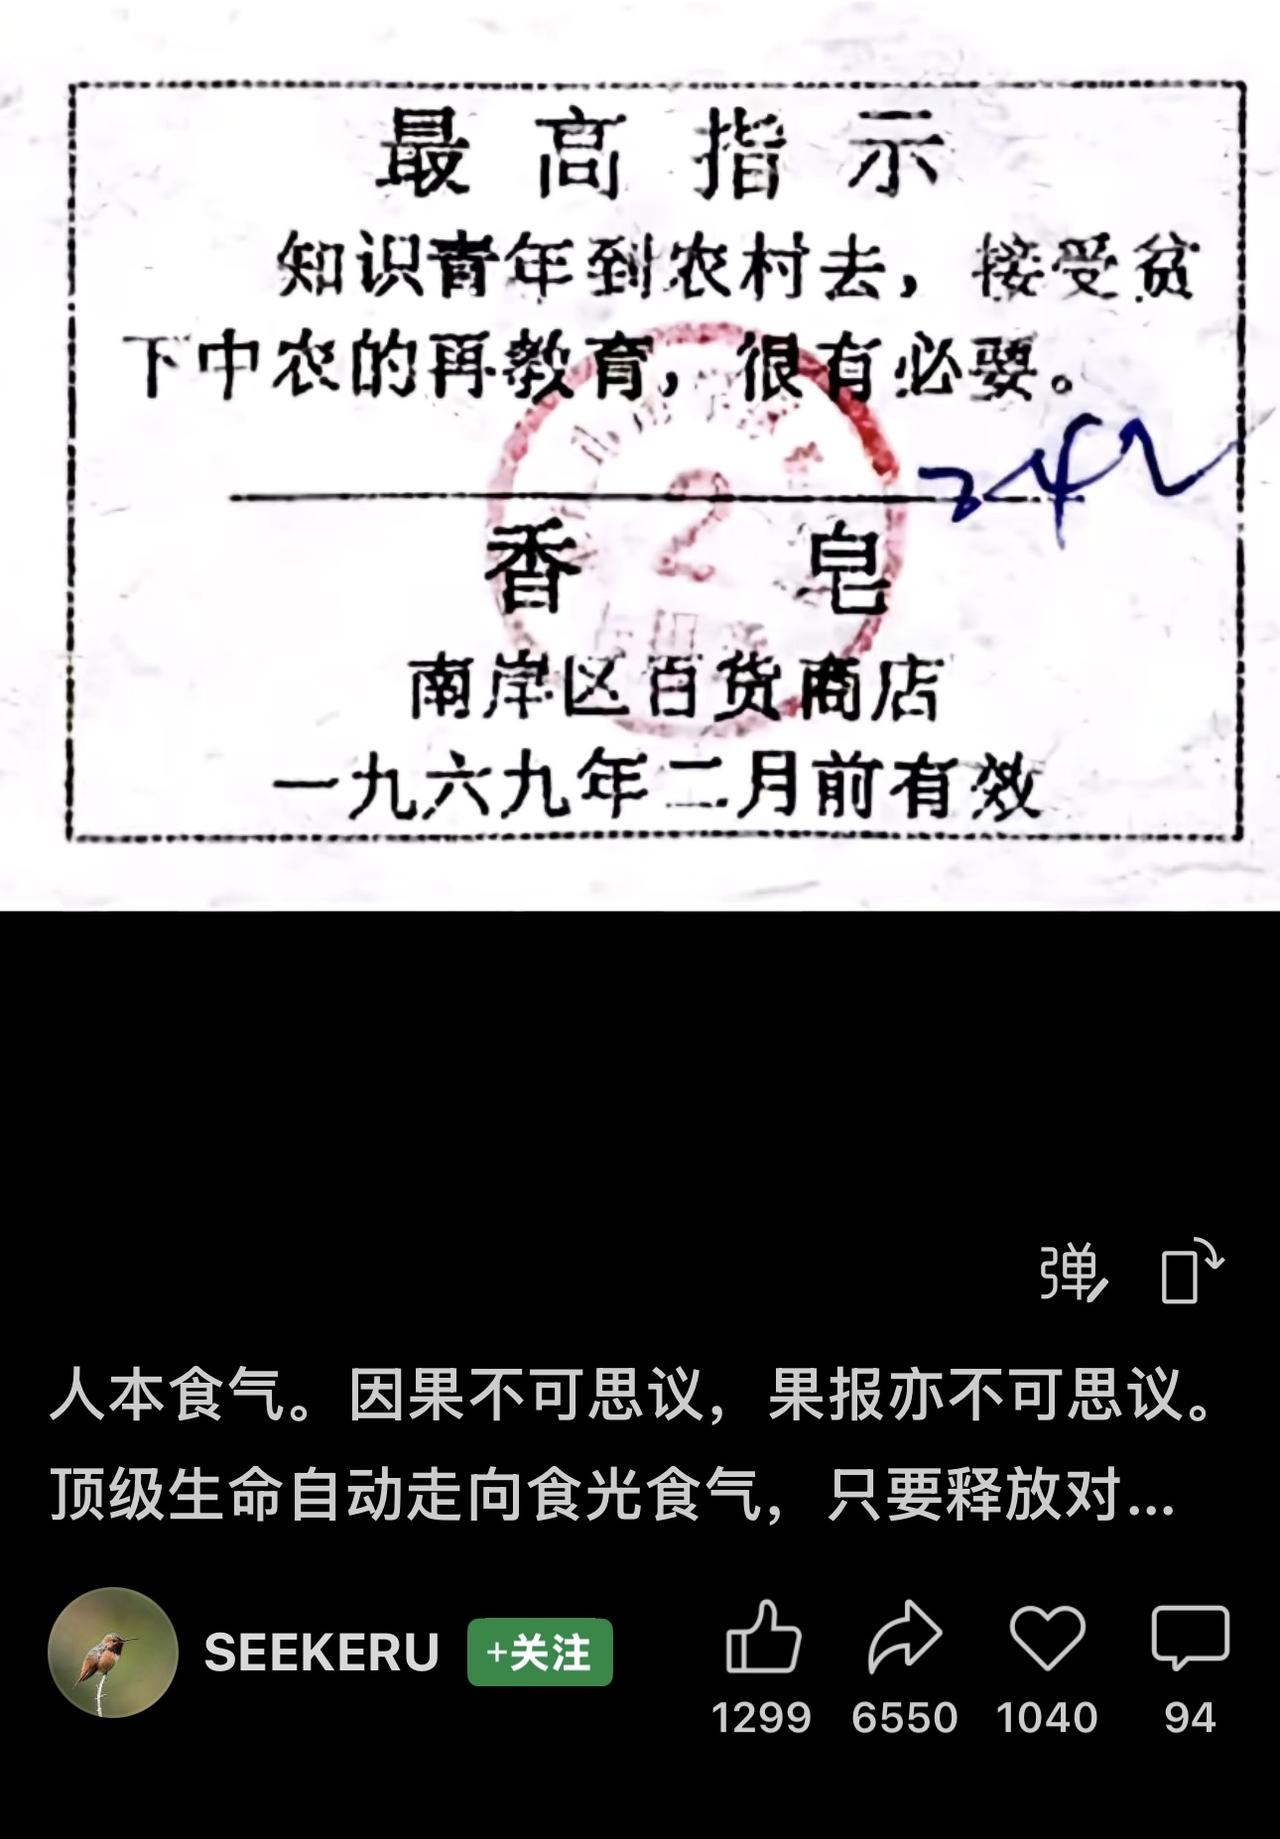 最高指示
知识青年到农村去，接受贫
下中农的再教育，很有必要。
2
香皂
南岸区百货商店
一九六九年二月前有效
弹
人本食气。因果不可思议，果报亦不可思议。
顶级生命自动走向食光食气，只要释放对...
SEEKERU
+关注
1299
6550
1040
94